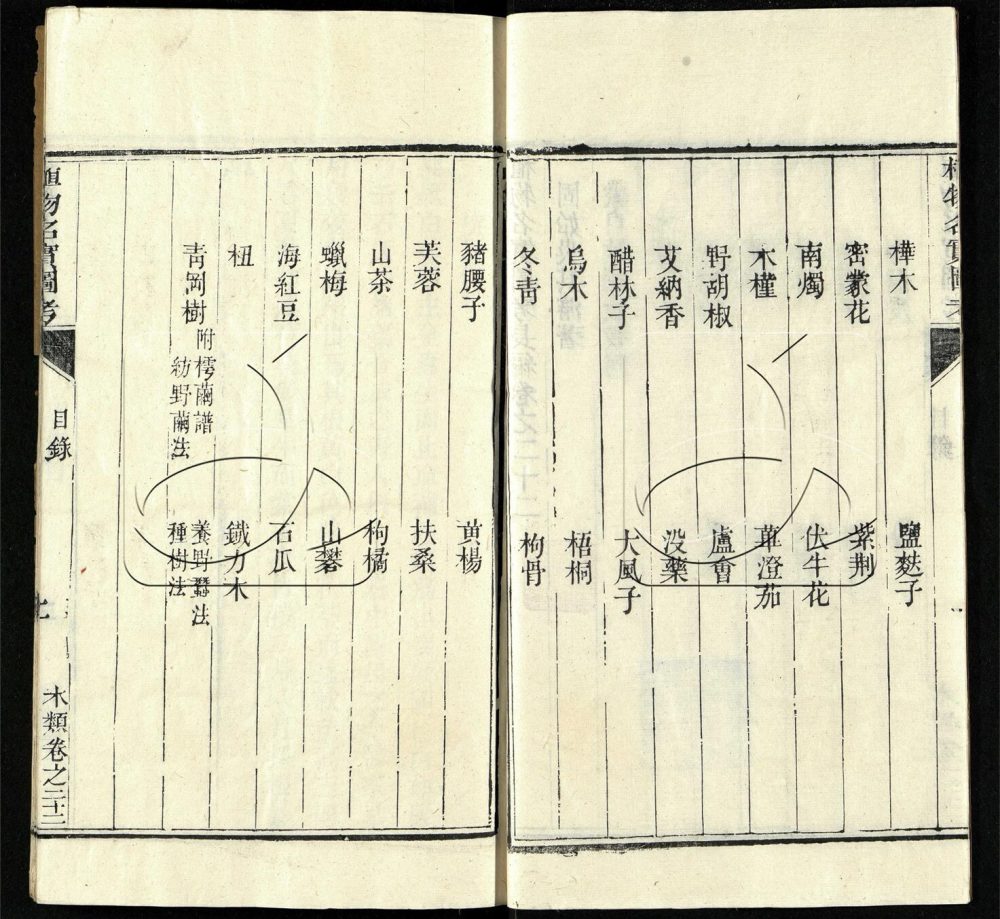 樺木 鹽麩子
密蒙花 紫荆
南燭 伏牛花
木槿 蓽澄茄
野胡椒 盧會
艾納香 没藥
醋林子 大風子
烏木 梧桐
冬青 枸骨
豬腰子 黄楊
芙蓉 扶桑
山茶 枸橘
蠟梅 山礬
海紅豆 石瓜
杻 鐵力木
青岡樹 附樗繭譜 養野蠶法
紡野繭法 種樹法
植物名實圖考 目錄 七 木類卷之二十二